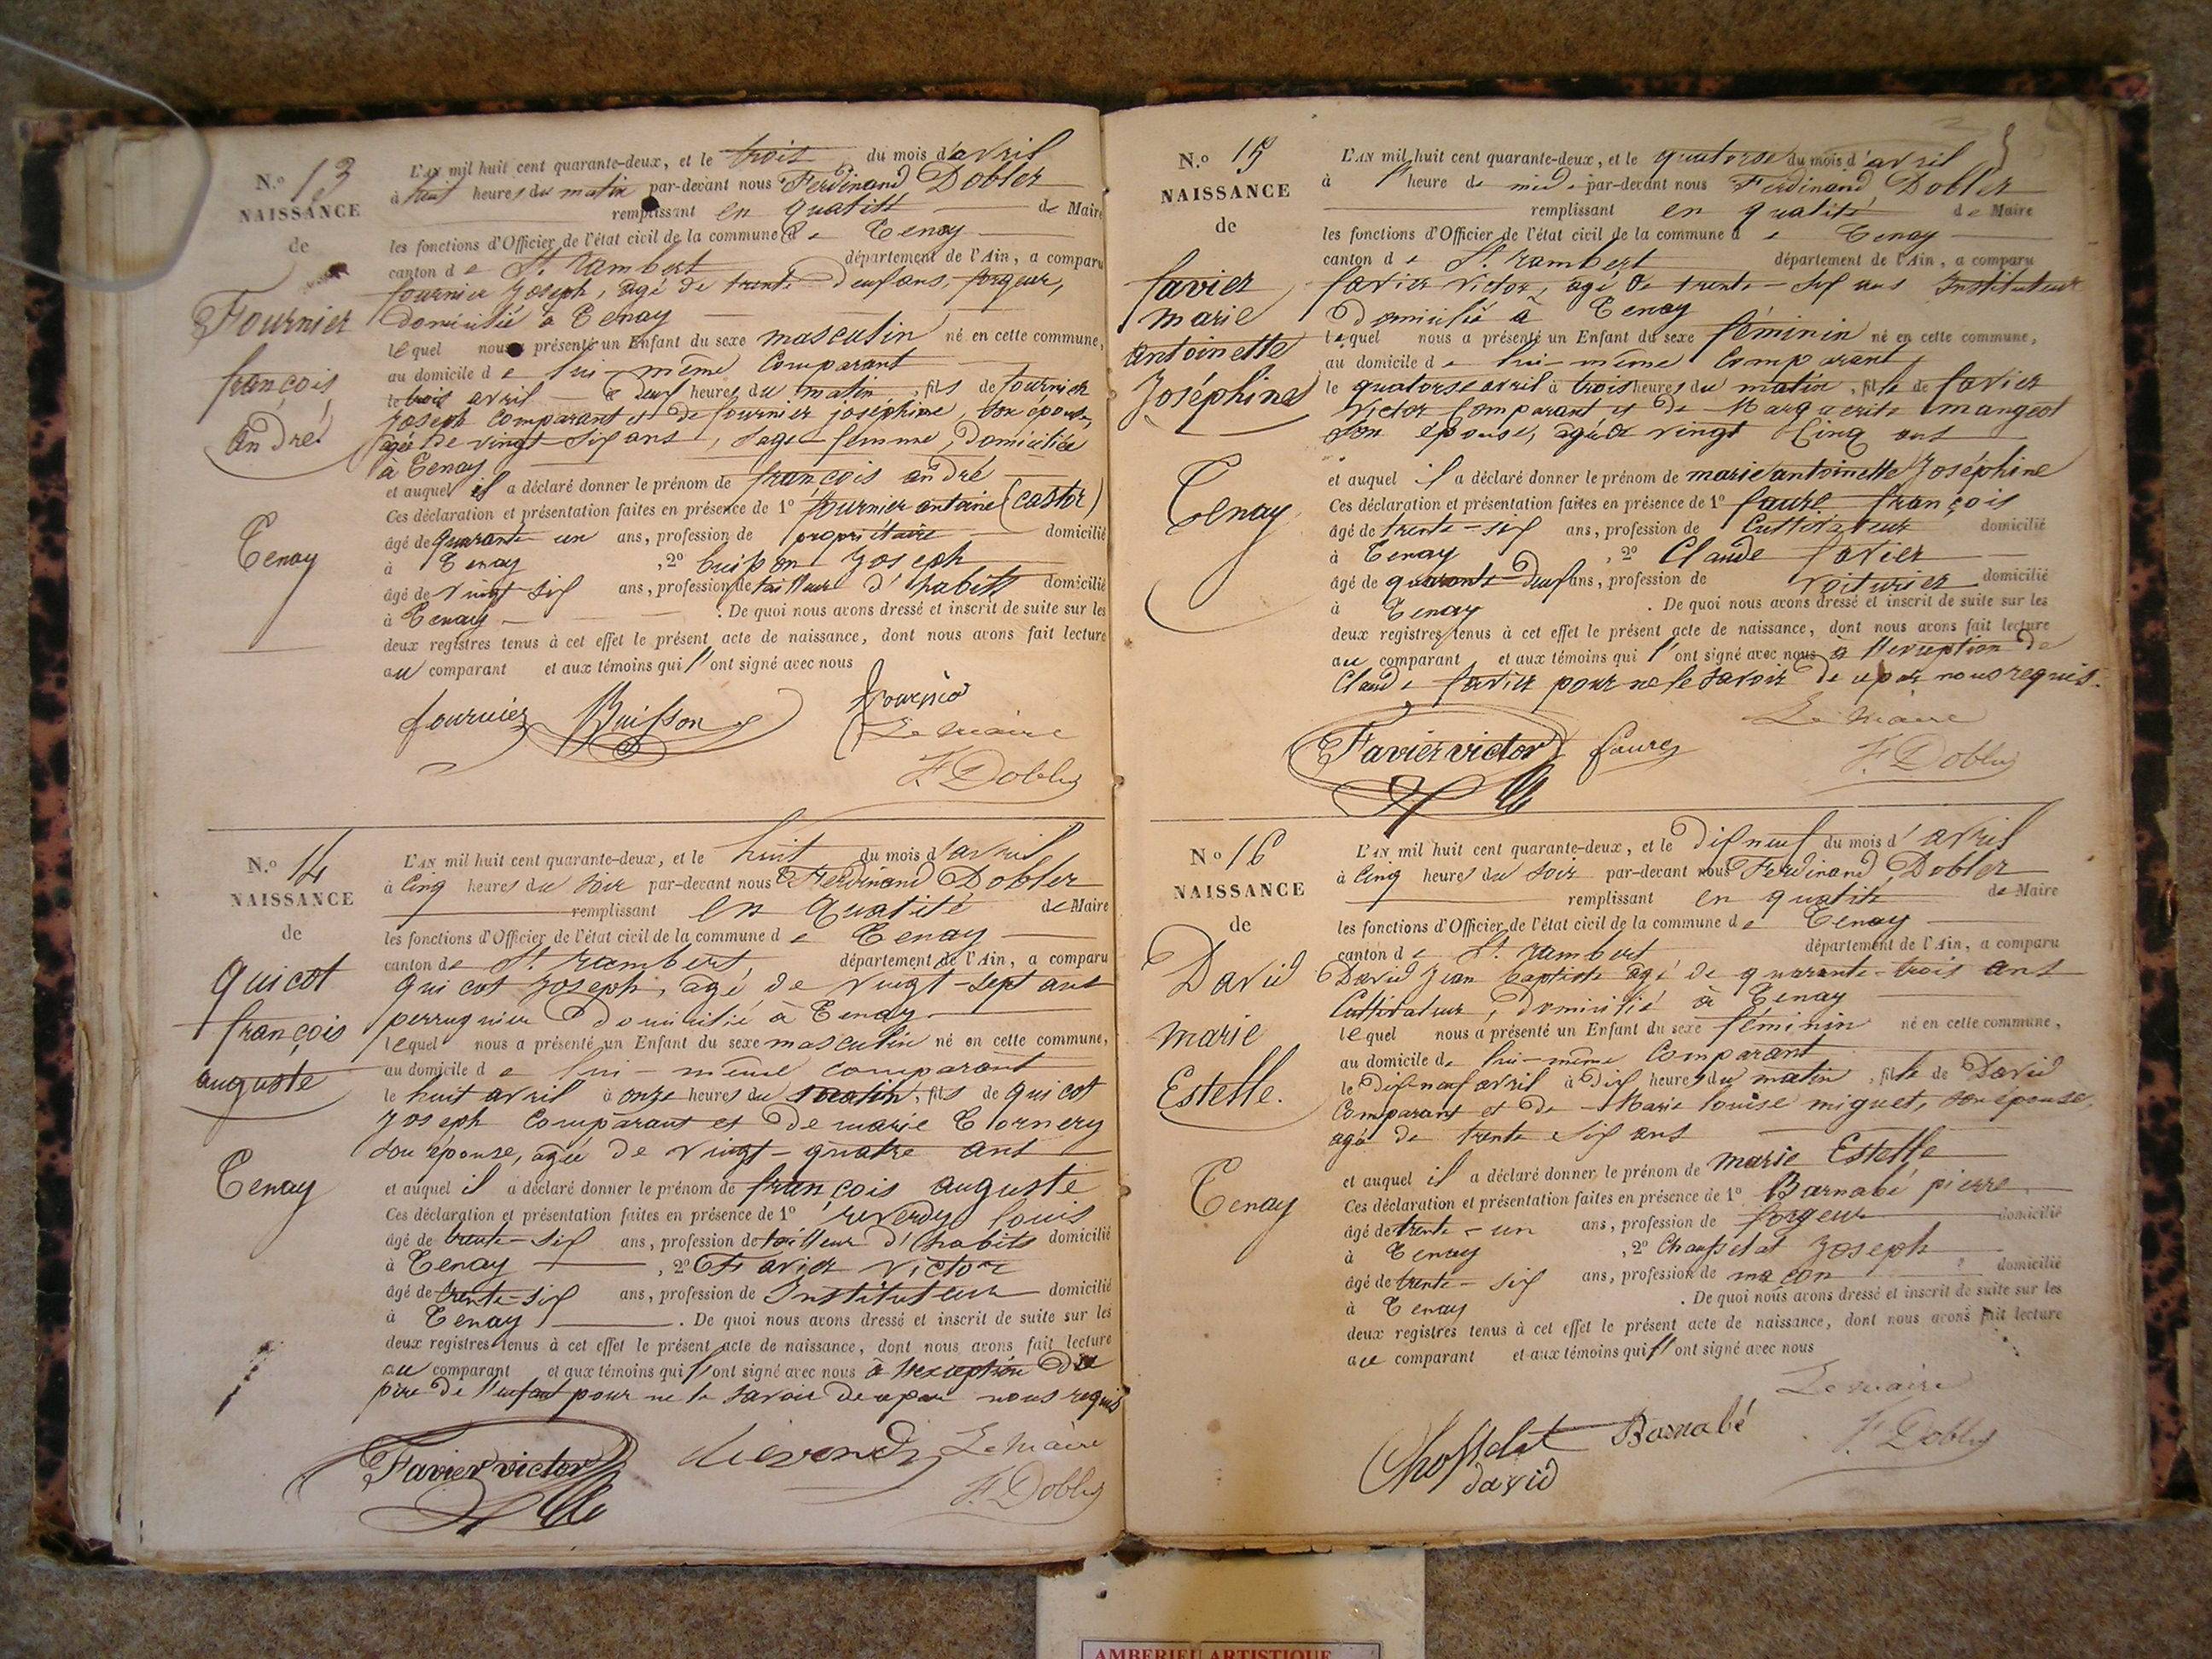 N.o 13
NAISSANCE
de
Fournier
françois
andré
Tenay
L'AN mil huit cent quarante-deux, et le trois du mois d'avril
à huit heures du matin par-devant nous Ferdinand Dobler
remplissant en qualité de Maire
les fonctions d'Officier de l'état civil de la commune de Tenay
canton de St. rambert département de l'Ain, a comparu
fournier Joseph, agé de trente-deux ans, forgeur,
domicilié à Tenay
lequel nous a présenté un Enfant du sexe masculin né en cette commune,
au domicile de lui-même Comparant
le trois avril à deux heures du matin, fils de fournier
Joseph Comparant et de fournier joséphine, son épouse,
agée de vingt-six ans, sage-femme, domiciliée
à Tenay
et auquel il a déclaré donner le prénom de françois andré
Ces déclaration et présentation faites en présence de 1o fournier antoine (castor)
âgé de quarante un ans, profession de propriétaire domicilié
à Tenay, 2o buisson Joseph
âgé de vingt-six ans, profession de tailleur d'habits domicilié
à Tenay. De quoi nous avons dressé et inscrit de suite sur les
deux registres tenus à cet effet le présent acte de naissance, dont nous avons fait lecture
au comparant et aux témoins qui l'ont signé avec nous
fournier Buisson fournier
Le Maire
F. Dobler
N.o 14
NAISSANCE
de
quicot
françois
auguste
Tenay
L'AN mil huit cent quarante-deux, et le huit du mois d'avril
à Cinq heures du soir par-devant nous Ferdinand Dobler
remplissant en qualité de Maire
les fonctions d'Officier de l'état civil de la commune de Tenay
canton de St. rambert, département de l'Ain, a comparu
quicot Joseph, agé de vingt-sept ans
perruquier domicilié à Tenay
lequel nous a présenté un Enfant du sexe masculin né en cette commune,
au domicile de lui-même comparant
le huit avril à onze heures du matin, fils de quicot
Joseph Comparant et de marie
son épouse, agée de vingt-quatre ans
et auquel il a déclaré donner le prénom de françois auguste
Ces déclaration et présentation faites en présence de 1o reverdy louis
âgé de trente-six ans, profession de tailleur d'habits domicilié
à Tenay, 2o Favier victor
âgé de trente-six ans, profession de Instituteur domicilié
à Tenay. De quoi nous avons dressé et inscrit de suite sur les
deux registres tenus à cet effet le présent acte de naissance, dont nous avons fait lecture
au comparant et aux témoins qui l'ont signé avec nous à l'exception du
père de l'enfant pour ne le savoir de ce par nous requis
Favier victor Le Maire
F. Dobler
N.o 15
NAISSANCE
de
favier
marie
antoinette
Joséphine
Tenay
L'AN mil huit cent quarante-deux, et le quatorse du mois d'avril
à l'heure de midi par-devant nous Ferdinand Dobler
remplissant en qualité de Maire
les fonctions d'Officier de l'état civil de la commune de Tenay
canton de St. rambert département de l'Ain, a comparu
favier victor, agé de trente-six ans Instituteur
Domicilié à Tenay
lequel nous a présenté un Enfant du sexe féminin né en cette commune,
au domicile de lui-même Comparant,
le quatorse avril à trois heures du matin, fille de favier
victor Comparant et de Marguerite mangeot
son épouse, agée de vingt Cinq ans
et auquel il a déclaré donner le prénom de marie antoinette Joséphine
Ces déclaration et présentation faites en présence de 1o faure françois
âgé de trente-six ans, profession de Cultivateur domicilié
à Tenay, 2o Claude favier
âgé de quarante-deux ans, profession de voiturier domicilié
à Tenay. De quoi nous avons dressé et inscrit de suite sur les
deux registres tenus à cet effet le présent acte de naissance, dont nous avons fait lecture
au comparant et aux témoins qui l'ont signé avec nous à l'exception de
Claude favier pour ne le savoir de ce par nous requis.
Le Maire
Favier victor faure F. Dobler
No 16
NAISSANCE
de
David
marie
Estelle.
Tenay
L'AN mil huit cent quarante-deux, et le dix neuf du mois d'avril
à Cinq heures du soir par-devant nous Ferdinand Dobler
remplissant en qualité de Maire
les fonctions d'Officier de l'état civil de la commune de Tenay
canton de St. rambert département de l'Ain, a comparu
David Jean baptiste agé de quarante-trois ans
Cultivateur, domicilié à Tenay
lequel nous a présenté un Enfant du sexe féminin né en cette commune,
au domicile de lui-même Comparant
le dix-neuf avril à dix heures du matin, fille de David
Comparant et de Marie louise miguet, son épouse
agée de trente six ans
et auquel il a déclaré donner le prénom de marie Estelle
Ces déclaration et présentation faites en présence de 1o Barnabé pierre
âgé de trente-un ans, profession de forgeur domicilié
à Tenay, 2o Chausselat Joseph
âgé de trente-six ans, profession de maçon domicilié
à Tenay. De quoi nous avons dressé et inscrit de suite sur les
deux registres tenus à cet effet le présent acte de naissance, dont nous avons fait lecture
au comparant et aux témoins qui l'ont signé avec nous
Le maire
Chosselat Barnabé F. Dobler
david
AMBERIEU ARTISTIQUE